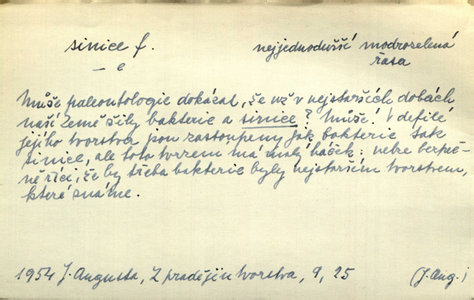 sinice f.
– e
nejjednodušší modrozelená
řasa
Může paleontologie dokázat, že už v nejstarších dobách
naší Země žily bakterie a sinice? Může! V defilé
jejího tvorstva jsou zastoupeny jak bakterie tak
sinice, ale toto tvrzení má malý háček: nelze bezpeč-
ně říci, že by třeba bakterie byly nejstarším tvorstvem,
které známe.
1954 J. Augusta, Z pradějin tvorstva, 9, 25
(J. Aug.)